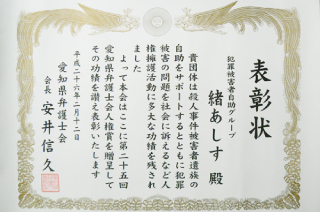 表彰状
犯罪被害者自助グループ
緒あしす 殿
貴団体は殺人事件被害者遺族の
自助をサポートするとともに犯罪
被害の問題を社会に訴えるなど人
権擁護活動に多大な功績を残され
ました
よって本会はここに第二十五回
愛知県弁護士会人権賞を贈呈して
その功績を讃え表彰いたします
平成二十六年二月十二日
愛知県弁護士会
会長 安井信久